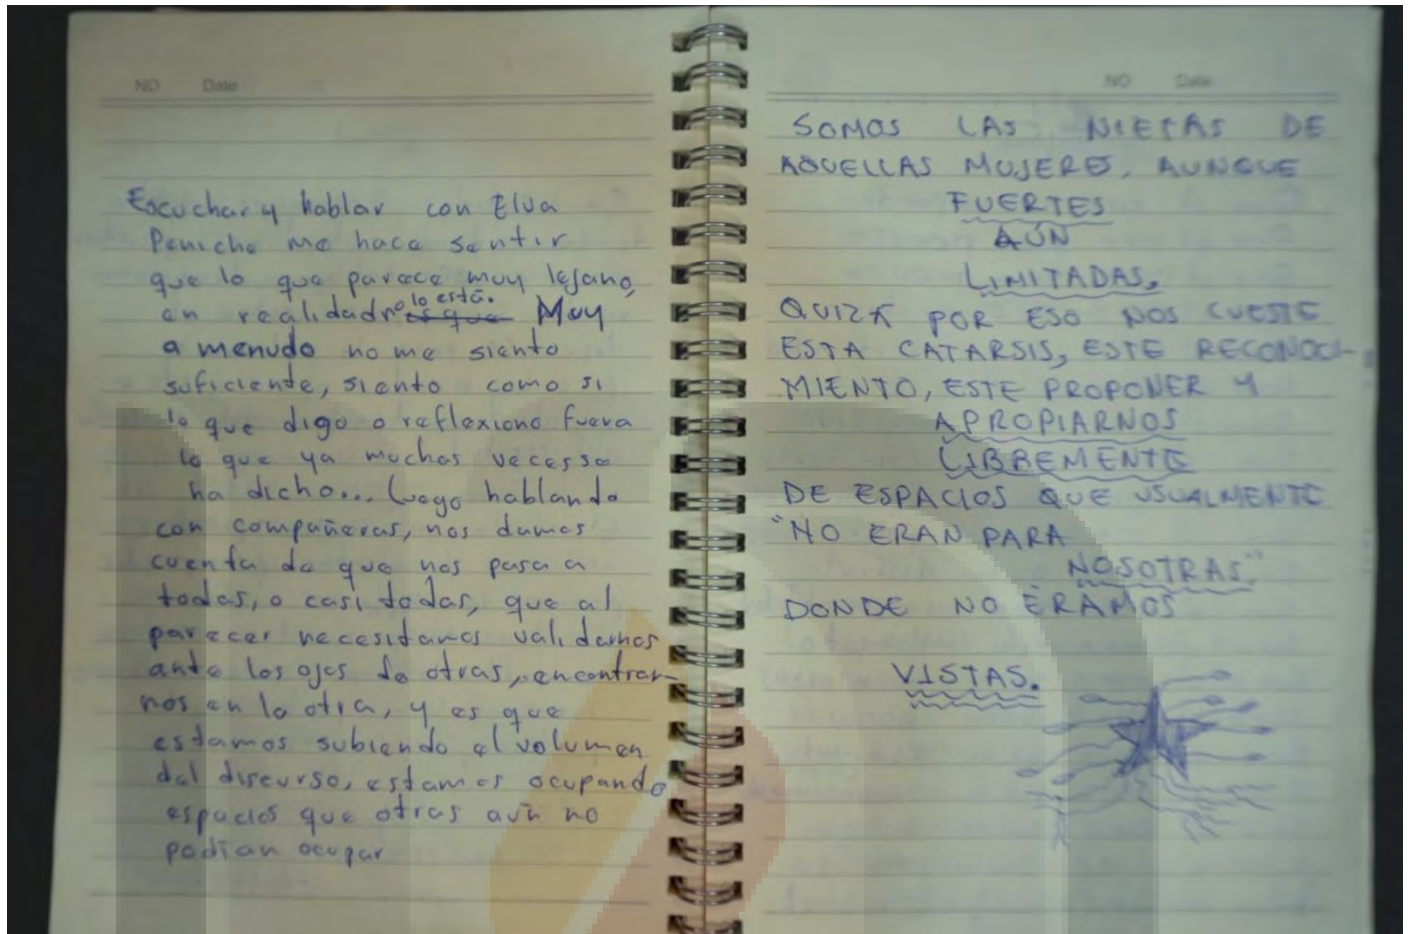 NO Date
Escuchar y hablar con Elva
Peniche me hace sentir
que lo que parece muy lejano,
en realidad no lo está. es que Muy
a menudo no me siento
suficiente, siento como si
lo que digo o reflexiono fuera
lo que ya muchas veces se
ha dicho... luego hablando
con compañeras, nos damos
cuenta de que nos pasa a
todas, o casi todas, que al
parecer necesitamos validarnos
ante los ojos de otras, encontrar-
nos en la otra, y es que
estamos subiendo el volumen
del discurso, estamos ocupando
espacios que otras aún no
podían ocupar
NO Date
SOMOS LAS NIETAS DE
AQUELLAS MUJERES, AUNQUE
FUERTES
AÚN
LIMITADAS.
QUIZÁ POR ESO NOS CUESTE
ESTA CATARSIS, ESTE RECONOCI-
MIENTO, ESTE PROPONER Y
APROPIARNOS
LIBREMENTE
DE ESPACIOS QUE USUALMENTE
"NO ERAN PARA
NOSOTRAS."
DONDE NO ÉRAMOS
VISTAS.